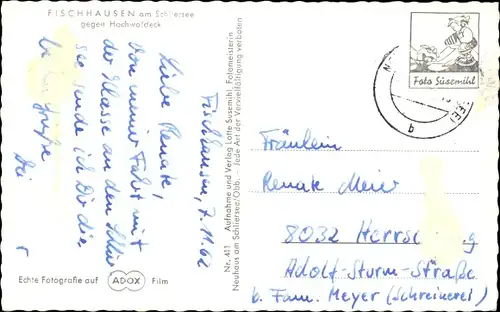 FISCHHAUSEN am Schliersee
gegen Hochwaldeck
Fischhausen, 7.11.62
Liebe Renate,
Von meiner Fahrt mit
der Klasse an den Schlier
see sende ich Dir die
Echte Fotografie auf ADOX Film
Nr. 411 Aufnahme und Verlag Lotte Susemihl, Fotomeisterin
Neuhaus am Schliersee/Obb. - Jede Art der Vervielfältigung verboten
Foto Susemihl
b
Fräulein
Renate Meier
8032 Herrsc g
Adolf-Sturm-Straße
b. Fam. Meyer (Schreinerei)